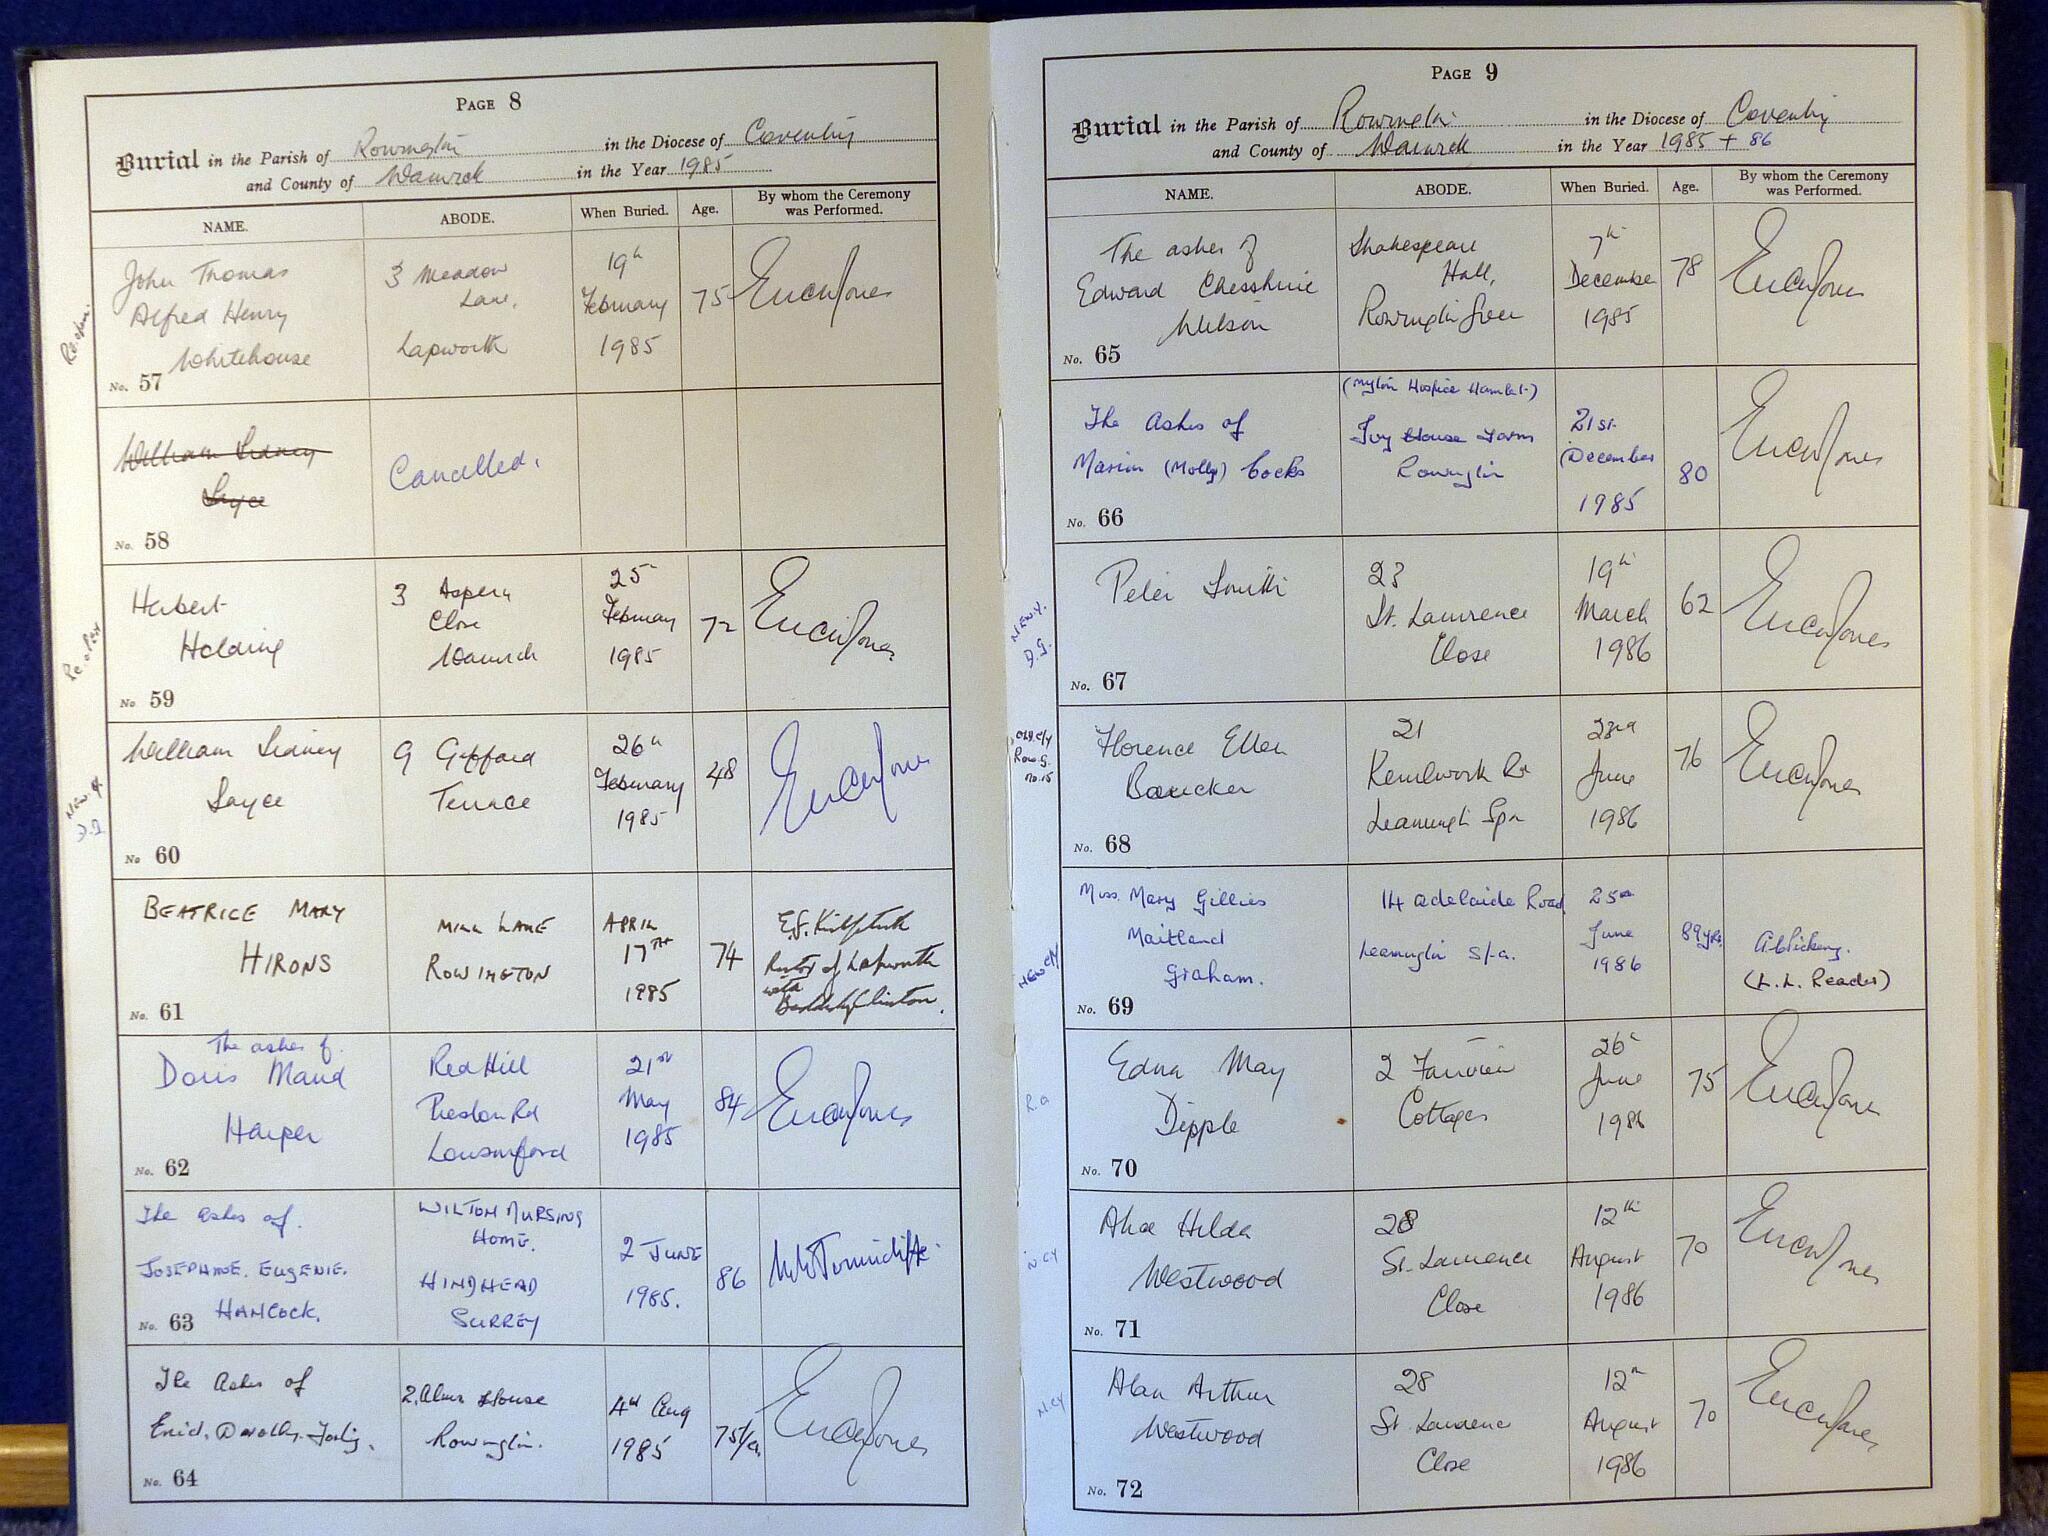 PAGE 8
Burial in the Parish of Rowington in the Diocese of Coventry
and County of Warwick in the Year 1985
NAME. ABODE. When Buried. Age. By whom the Ceremony was Performed.
John Thomas
Alfred Henry
Whitehouse
3 Meadow
Lane,
Lapworth
19th
February
1985
75
No. 57
William Sidney
Sayce
Cancelled.
No. 58
Herbert
Holding
3 Aspen
Close
Warwick
25
February
1985
72
No 59
William Sidney
Sayce
9 Gifford
Terrace
26th
February
1985
48
No 60
BEATRICE MARY
HIRONS
MILL LANE
ROWINGTON
APRIL
17TH
1985
74
Rector of Lapworth
with
Baddesley Clinton.
No. 61
The ashes of
Doris Maud
Harper
Red Hill
Preston Rd
Lowsonford
21st
May
1985
84
No. 62
The ashes of.
JOSEPHINE. EUGENIE.
HANCOCK.
WILTON NURSING
HOME.
HINDHEAD
SURREY
2 JUNE
1985.
86
No. 63
The Ashes of
Enid. Dorothy.
2. Alms House
Rowington.
4th Aug
1985
No. 64
PAGE 9
Burial in the Parish of Rowington in the Diocese of Coventry
and County of Warwick in the Year 1985 + 86
NAME. ABODE. When Buried. Age. By whom the Ceremony was Performed.
The ashes of
Edward Chesshire
Wilson
Shakespeare
Hall,
Rowington Green
7th
December
1985
78
No. 65
The Ashes of
Marion (Molly) Cocks
(Myton Hospice Hamlet)
Ivy House Farm
Rowington
21st
December
1985
80
No. 66
Peter Smith
23
St. Lawrence
Close
19th
March
1986
62
No. 67
Florence Ellen
21
Kenilworth Rd
Leamington Spa
23rd
June
1986
76
No. 68
Miss. Mary Gillies
Maitland
Graham.
14 Adelaide Road
Leamington Spa.
25th
June
1986
89 yrs.
(L. L. Reader)
No. 69
Edna May
Dipple
2 Fairview
Cottages
26th
June
1986
75
No. 70
Alice Hilda
Westwood
28
St. Lawrence
Close
12th
August
1986
70
No. 71
Alan Arthur
Westwood
28
St. Lawrence
Close
12th
August
1986
70
No. 72